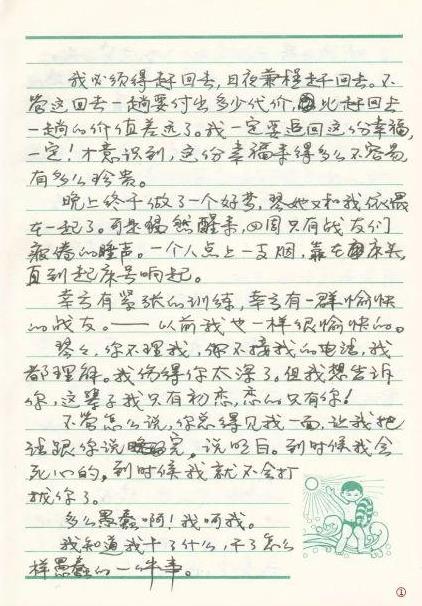 我必须得赶回去，日夜兼程赶回去。不
管这回去一趟要付出多少代价，比赶回去
一趟的价值差远了。我一定要追回这份幸福，
一定！才意识到，这份幸福来得多么不容易
有多么珍贵。
晚上终于做了一个好梦，琴她又和我依偎
在一起了。可是猛然醒来，四周只有战友们
疲倦的鼾声。一个人点上一支烟，靠在床头
直到起床号响起。
幸亏有紧张的训练，幸亏有一群愉快
的战友。——以前我也一样很愉快的。
琴琴，你不理我，你不接我的电话，我
都理解。我伤得你太深了。但我想告诉
你，这辈子我只有初恋，恋的只有你！
不管怎么说，你总得见我一面，让我把
话跟你说完，说明白。到时候我会
死心的，到时候我就不会打
扰你了。
多么愚蠢啊！我呵我。
我知道我干了什么，干了怎么
样愚蠢的一件事。
①